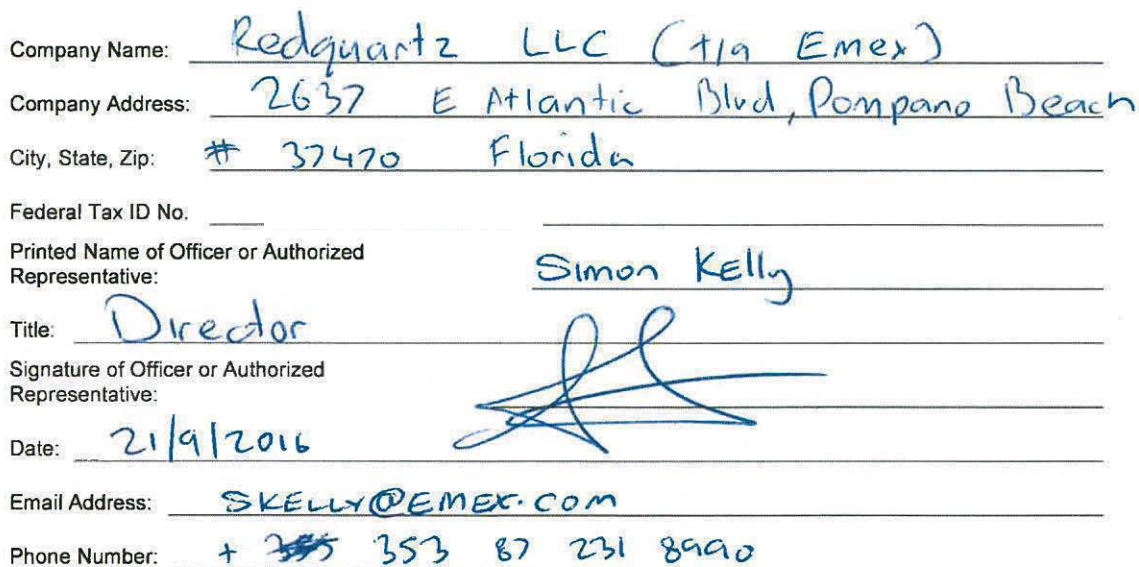 Company Name: Redquartz LLC (t/a Emex)
Company Address: 2637 E Atlantic Blvd, Pompano Beach
City, State, Zip: # 37470 Florida
Federal Tax ID No.
Printed Name of Officer or Authorized
Representative: Simon Kelly
Title: Director
Signature of Officer or Authorized
Representative:
Date: 21/9/2016
Email Address: SKELLY@EMEX.COM
Phone Number: + 353 87 231 8990